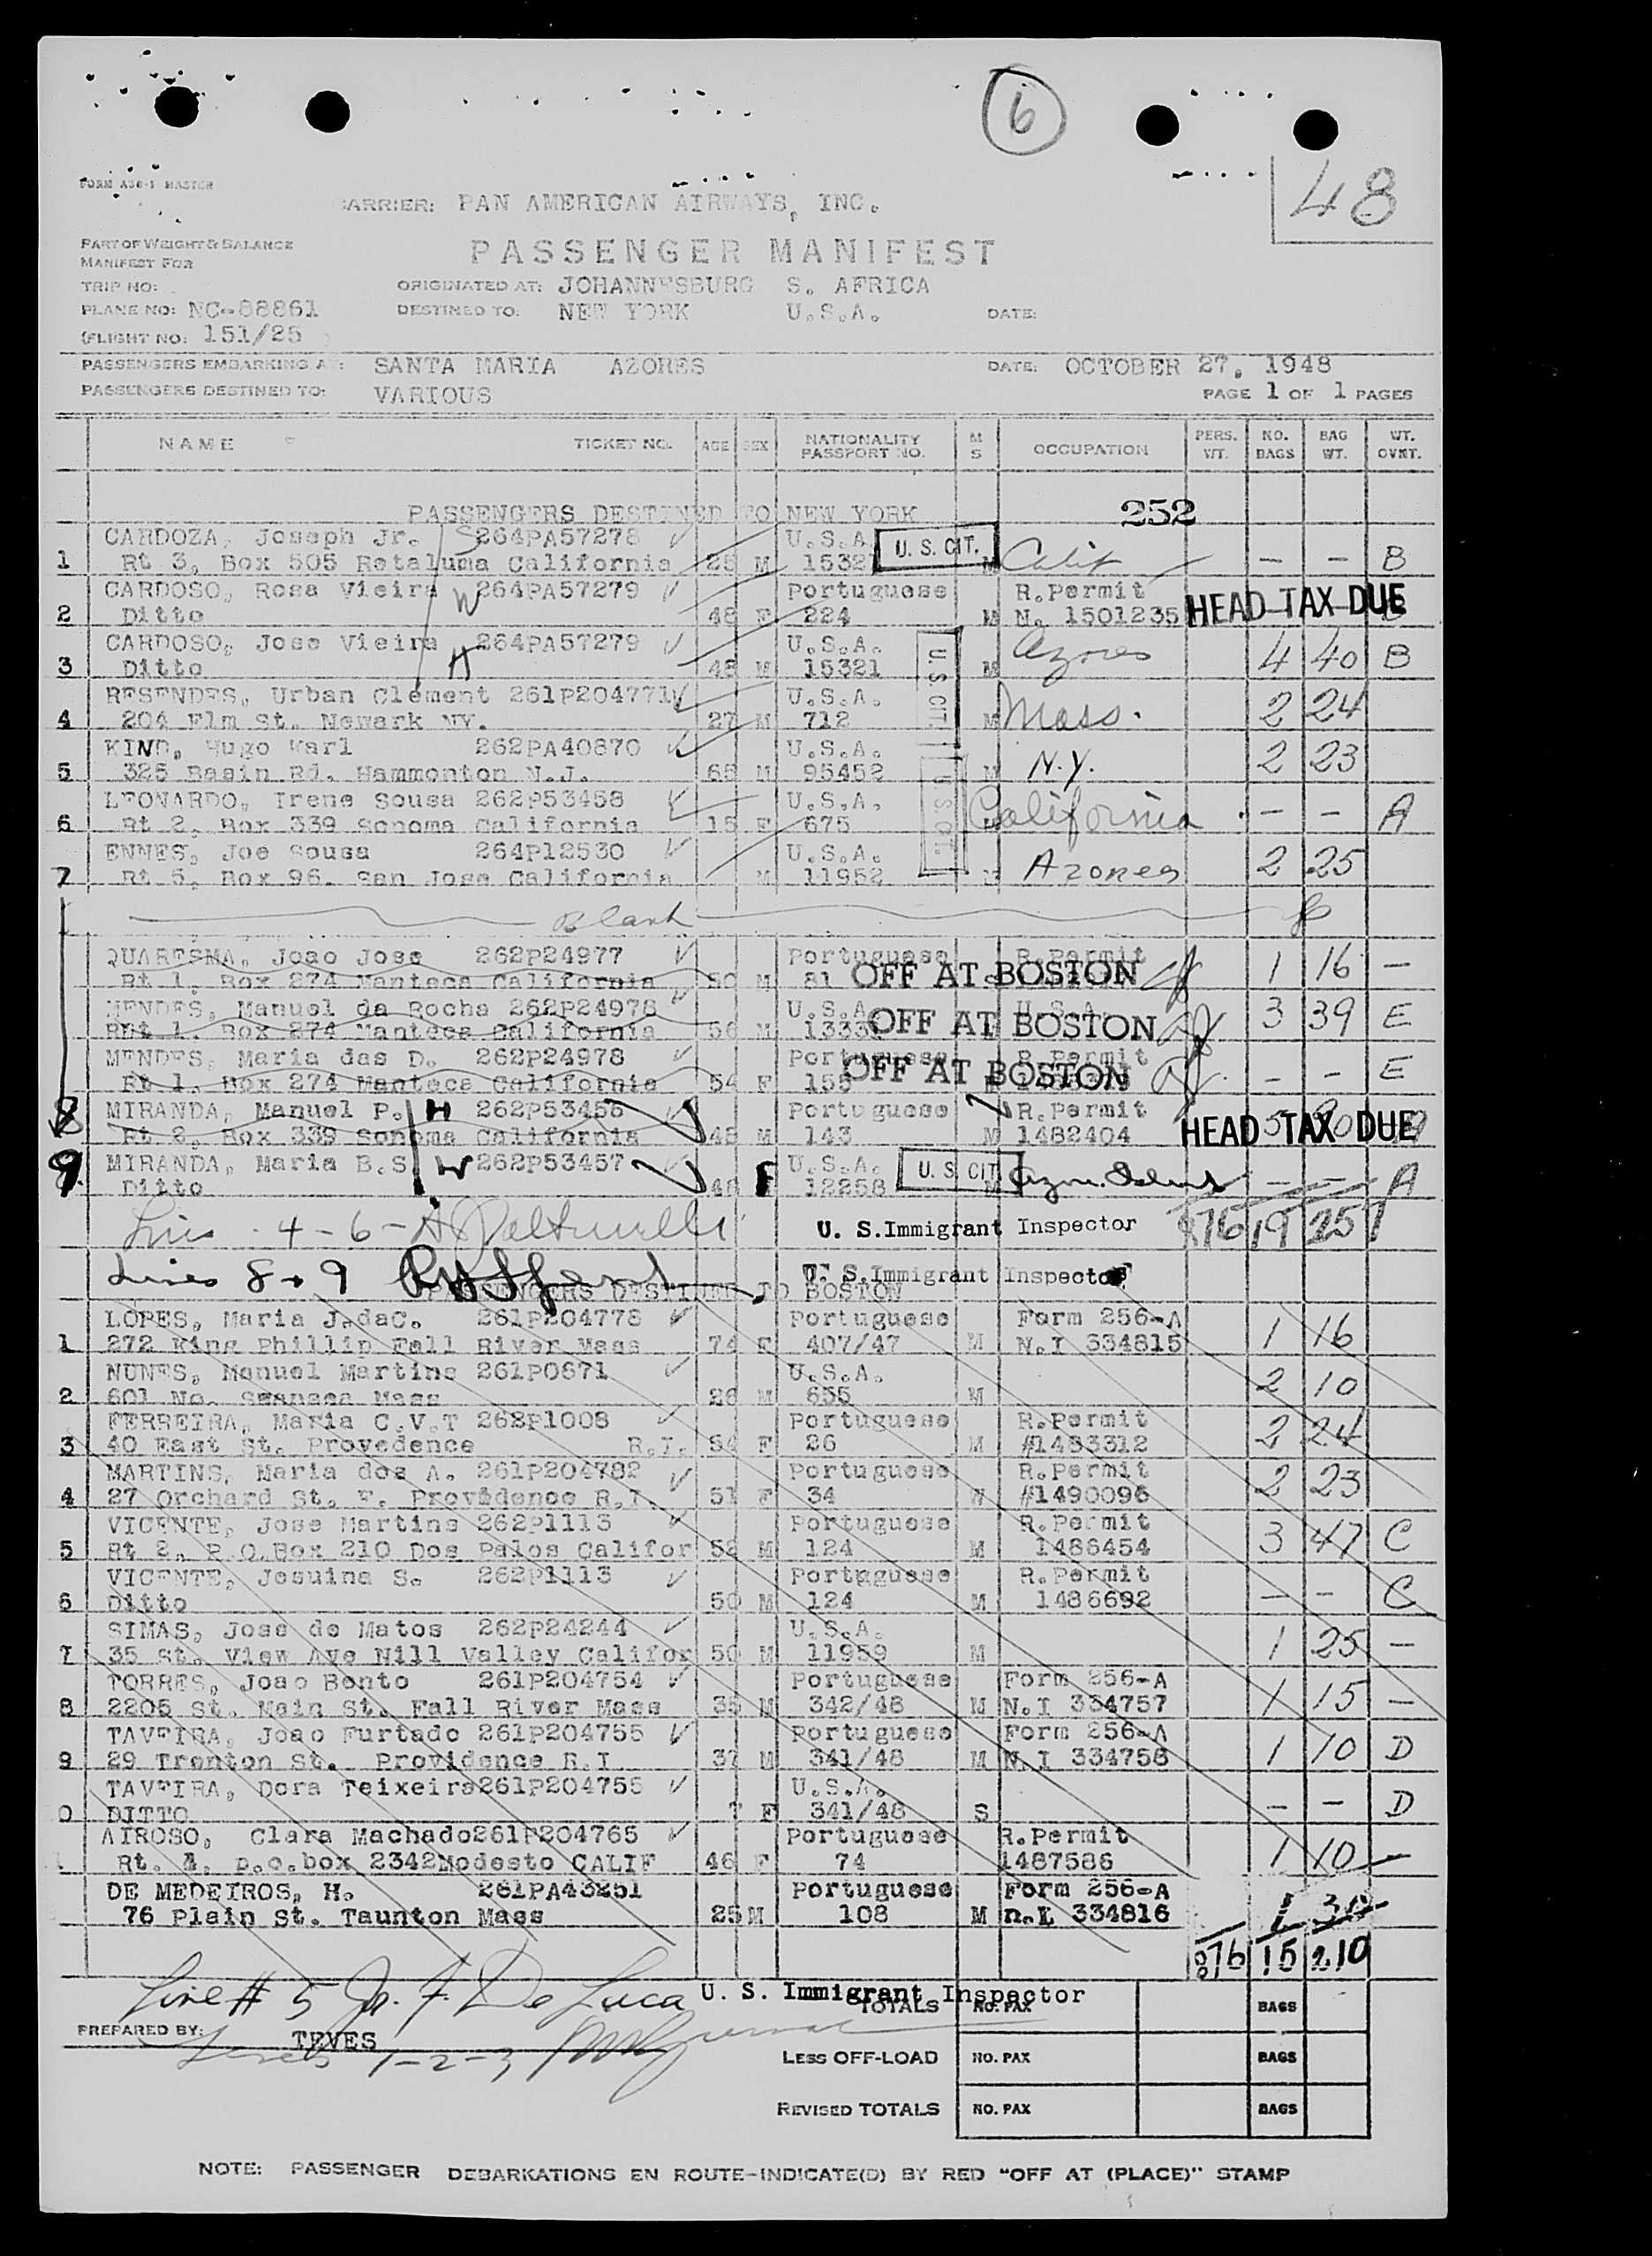 6
48
FORM A36-1 MASTER
CARRIER: PAN AMERICAN AIRWAYS, INC.
PART OF WEIGHT & BALANCE
MANIFEST FOR
PASSENGER MANIFEST
TRIP NO: ORIGINATED AT: JOHANNESBURG S. AFRICA
PLANE NO: NC-88861 DESTINED TO: NEW YORK U.S.A. DATE:
(FLIGHT NO: 151/25
PASSENGERS EMBARKING AT: SANTA MARIA AZORES DATE: OCTOBER 27, 1948
PASSENGERS DESTINED TO: VARIOUS PAGE 1 OF 1 PAGES
NAME TICKET NO. AGE SEX NATIONALITY PASSPORT NO. M S OCCUPATION PERS. WT. NO. BAGS BAG WT. WT. OVNT.
252
PASSENGERS DESTINED TO NEW YORK
CARDOZA, Joseph Jr. S 264PA57278 U.S.A. U. S. CIT.
1 Rt 3, Box 505 Petaluma California 25 M 1532 M Calif — — B
CARDOSO, Rosa Vieira W 264PA57279 Portuguese R.Permit
2 Ditto 48 F 224 M N. 1501235 HEAD TAX DUE
CARDOSO, Jose Vieira H 264PA57279 U.S.A. U. S. CIT.
3 Ditto 48 M 15321 M Azores 4 40 B
RESENDES, Urban Clement 261P204771 U.S.A.
4 204 Elm St. Newark NY. 27 M 712 M Mass. 2 24
KIND, Hugo Karl 262PA40870 U.S.A.
5 325 Basin Rd. Hammonton N.J. 65 M 95452 M N.Y. 2 23
LEONARDO, Irene Sousa 262P53458 U.S.A. U. S. CIT.
6 Rt 2, Box 339 Sonoma California 15 F 675 California — — A
ENNES, Joe Sousa 264P12530 U.S.A.
7 Rt 5, Box 96. San Jose California M 11952 Azores 2 25
Blank
QUARESMA, Joao Jose 262P24977 Portuguese R.Permit
Rt 1, Box 274 Manteca California 50 M 81 OFF AT BOSTON 1 16 —
MENDES, Manuel da Rocha 262P24978 U.S.A. U.S.A.
Rt 1, Box 274 Manteca California 56 M 1333 OFF AT BOSTON 3 39 E
MENDES, Maria das D. 262P24978 Portuguese R.Permit
Rt 1, Box 274 Manteca California 54 F 155 OFF AT BOSTON — — E
8 MIRANDA, Manuel P. H 262P53456 Portuguese R.Permit
Rt 2, Box 339 Sonoma California 48 M 143 M 1482404 HEAD TAX DUE
9 MIRANDA, Maria B.S. W 262P53457 U.S.A. U. S. CIT.
Ditto 48 F 12258 — — A
4-6- U. S.Immigrant Inspector 876 19 257
Lines 8 + 9 U. S.Immigrant Inspector
PASSENGERS DESTINED TO BOSTON
LOPES, Maria J.daC. 261P204778 Portuguese Form 256-A
1 272 King Phillip Fall River Mass 74 F 407/47 M N.I 334815 1 16
NUNES, Manuel Martins 261P0671 U.S.A.
2 601 No. Swansea Mass 26 M 655 M 2 10
FERREIRA, Maria C.V.T 262P1008 Portuguese R.Permit
3 40 East St. Provedence R.I. 54 F 26 M #1483312 2 24
MARTINS, Maria dos A. 261P204782 Portuguese R.Permit
4 27 Orchard St. E. Providence R.I. 51 F 34 W #1490096 2 23
VICENTE, Jose Martins 262P1113 Portuguese R.Permit
5 Rt 2, P.O.Box 210 Dos Palos Califor 52 M 124 M 1486454 3 47 C
VICENTE, Jesuina S. 262P1113 Portuguese R.Permit
6 Ditto 50 M 124 M 1486692 — — C
SIMAS, Jose de Matos 262P24244 U.S.A.
7 35 St. View Ave Nill Valley Califor 50 M 11959 M 1 25 —
TORRES, Joao Bento 261P204754 Portuguese Form 256-A
8 2205 St. Main St. Fall River Mass 35 M 342/48 M N.I 334757 1 15 —
TAVEIRA, Joao Furtado 261P204755 Portuguese Form 256-A
9 29 Trenton St. Providence R.I 37 M 341/48 M N.I 334758 1 10 D
TAVEIRA, Dora Teixeira 261P204755 U.S.A.
0 DITTO 7 F 341/48 S — — D
AIROSO, Clara Machado 261P204765 Portuguese R.Permit
Rt. 4, p.o.box 2342 Modesto CALIF 46 F 74 1487586 1 10 —
DE MEDEIROS, H. 261PA43251 Portuguese Form 256-A
76 Plain St. Taunton Mass 25 M 108 M n.I 334816 1 30
876 15 210
Line # 5 Jos. F. De Luca U. S. Immigrant Inspector
TOTALS NO. PAX BAGS
PREPARED BY: TEVES
Lines 1-2-3
LESS OFF-LOAD NO. PAX BAGS
REVISED TOTALS NO. PAX BAGS
NOTE: PASSENGER DEBARKATIONS EN ROUTE-INDICATE(D) BY RED "OFF AT (PLACE)" STAMP